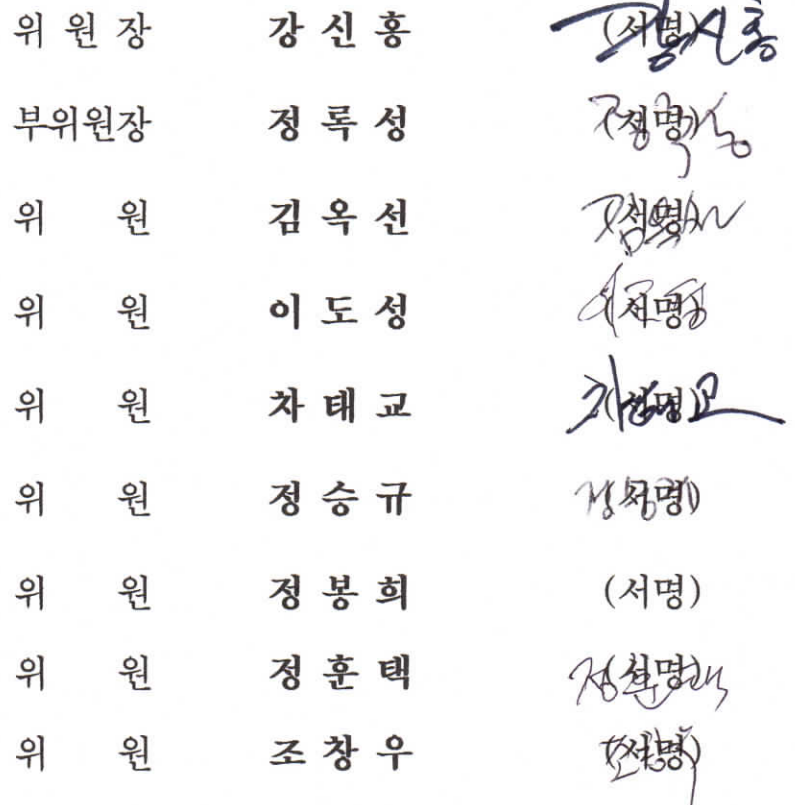 위 원 장 강 신 홍 (서명) 강신홍
부위원장 정 록 성 (서명)
위 원 김 옥 선 (서명)
위 원 이 도 성 (서명)
위 원 차 태 교 (서명)
위 원 정 승 규 (서명)
위 원 정 봉 희 (서명)
위 원 정 훈 택 (서명)
위 원 조 창 우 (서명)